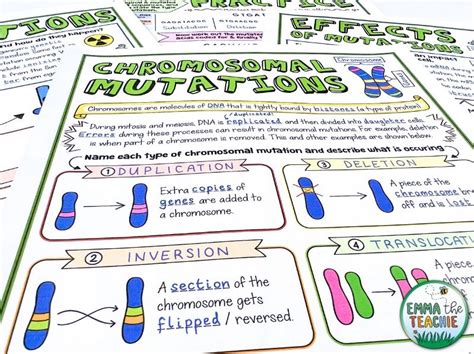 IONS
and how do they happen?
PRACTICE
GTGAT
GACATACGG GTGATCC
Substitution Deletion
Now work out the mutated
amino acids coded for & finally
EFFECTS
OF MUTATIONS
CHROMOSOMAL
MUTATIONS
Chromosome
Chromosomes are molecules of DNA that is tightly bound by histones (a type of protein)
(duplicated)
During mitosis and meiosis, DNA is replicated and then divided into daughter cells.
Errors during these processes can result in chromosomal mutations. For example, deletion
is when part of a chromosome is removed. This and other examples are shown below.
Name each type of chromosomal mutation and describe what is occuring
① DUPLICATION
Extra copies of
genes are added to
a chromosome.
② INVERSION
A section of the
chromosome gets
flipped / reversed.
③ DELETION
A piece of the
chromosome bre
off and is lost
④ TRANSLOCAT
A piec
chrom
EMMA the
TEACHIE